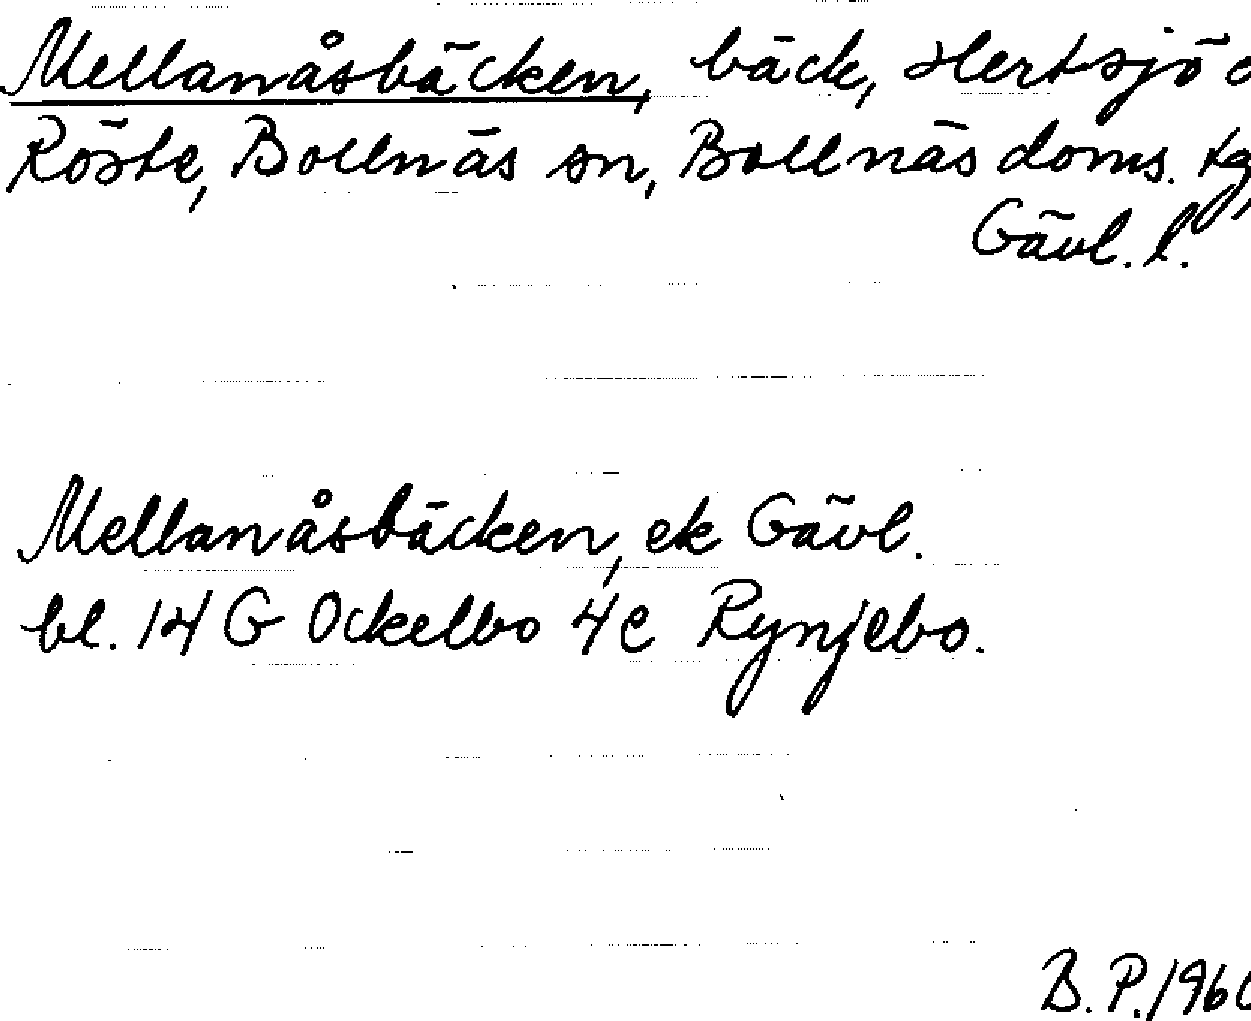 Mellanåsbäcken, bäck, Hertsjö o
Röste, Bollnäs sn, Bollnäs doms. tg,
Gävl. l.
Mellanåsbäcken, ek Gävl.
bl. 14 G Ockelbo 4 c Rynjebo.
B. P. 1960